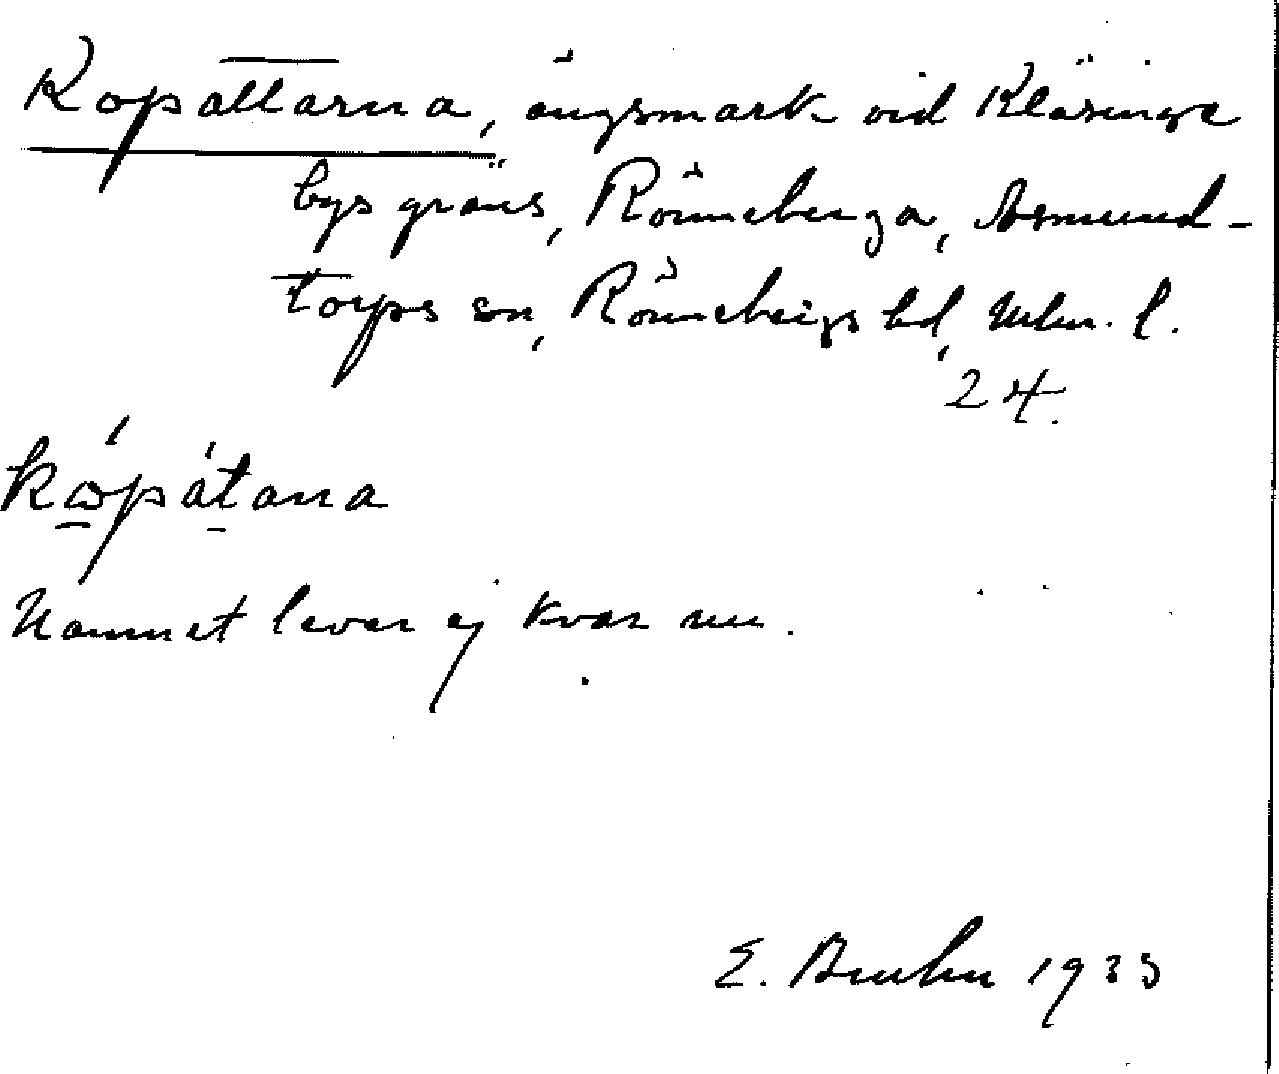 Kopattarna, ängsmark vid Kläsinge
bys gräns, Rönneberga, Asmund-
torps sn, Rönnebergs hd, Mlm. l.
24.
Namnet lever ej kvar nu.
E. Bruhn 1933